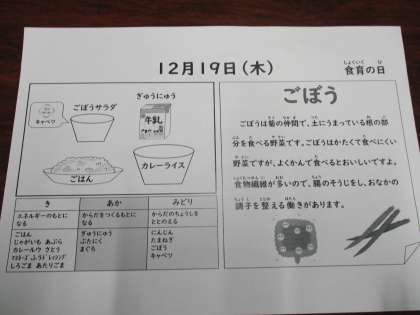 12月19日(木)
食育の日
ごぼうサラダ
キャベツ
ぎゅうにゅう
牛乳
カレーライス
ごはん
き
あか
みどり
エネルギーのもとに
なる
からだをつくるもとに
なる
からだのちょうしを
ととのえる
ごはん
じゃがいも あぶら
カレールウ さとう
しろごま あたりごま
ぎゅうにゅう
ぶたにく
まぐろ
にんじん
たまねぎ
ごぼう
キャベツ
ごぼう
ごぼうは菊の仲間で、土にうまっている根の部
分を食べる野菜です。ごぼうはかたくて食べにくい
野菜ですが、よくかんで食べるとおいしいですよ。
食物繊維が多いので、腸のそうじをし、おなかの
調子を整える働きがあります。